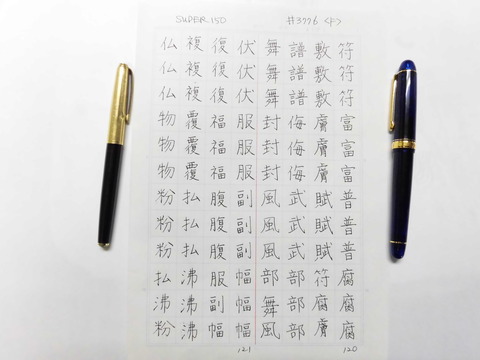 SUPER 150
#3776 〈F〉
符符符富富富普普普腐腐腐
敷敷敷膚膚膚賦賦賦符腐膚
譜譜譜侮侮侮武武武部部部
舞舞舞封封封風風風部舞風
伏伏伏服服服副副副幅幅幅
復復復福福福腹腹腹服副幅
複複複覆覆覆払払払沸沸沸
仏仏仏物物物粉粉粉払沸粉
120
121